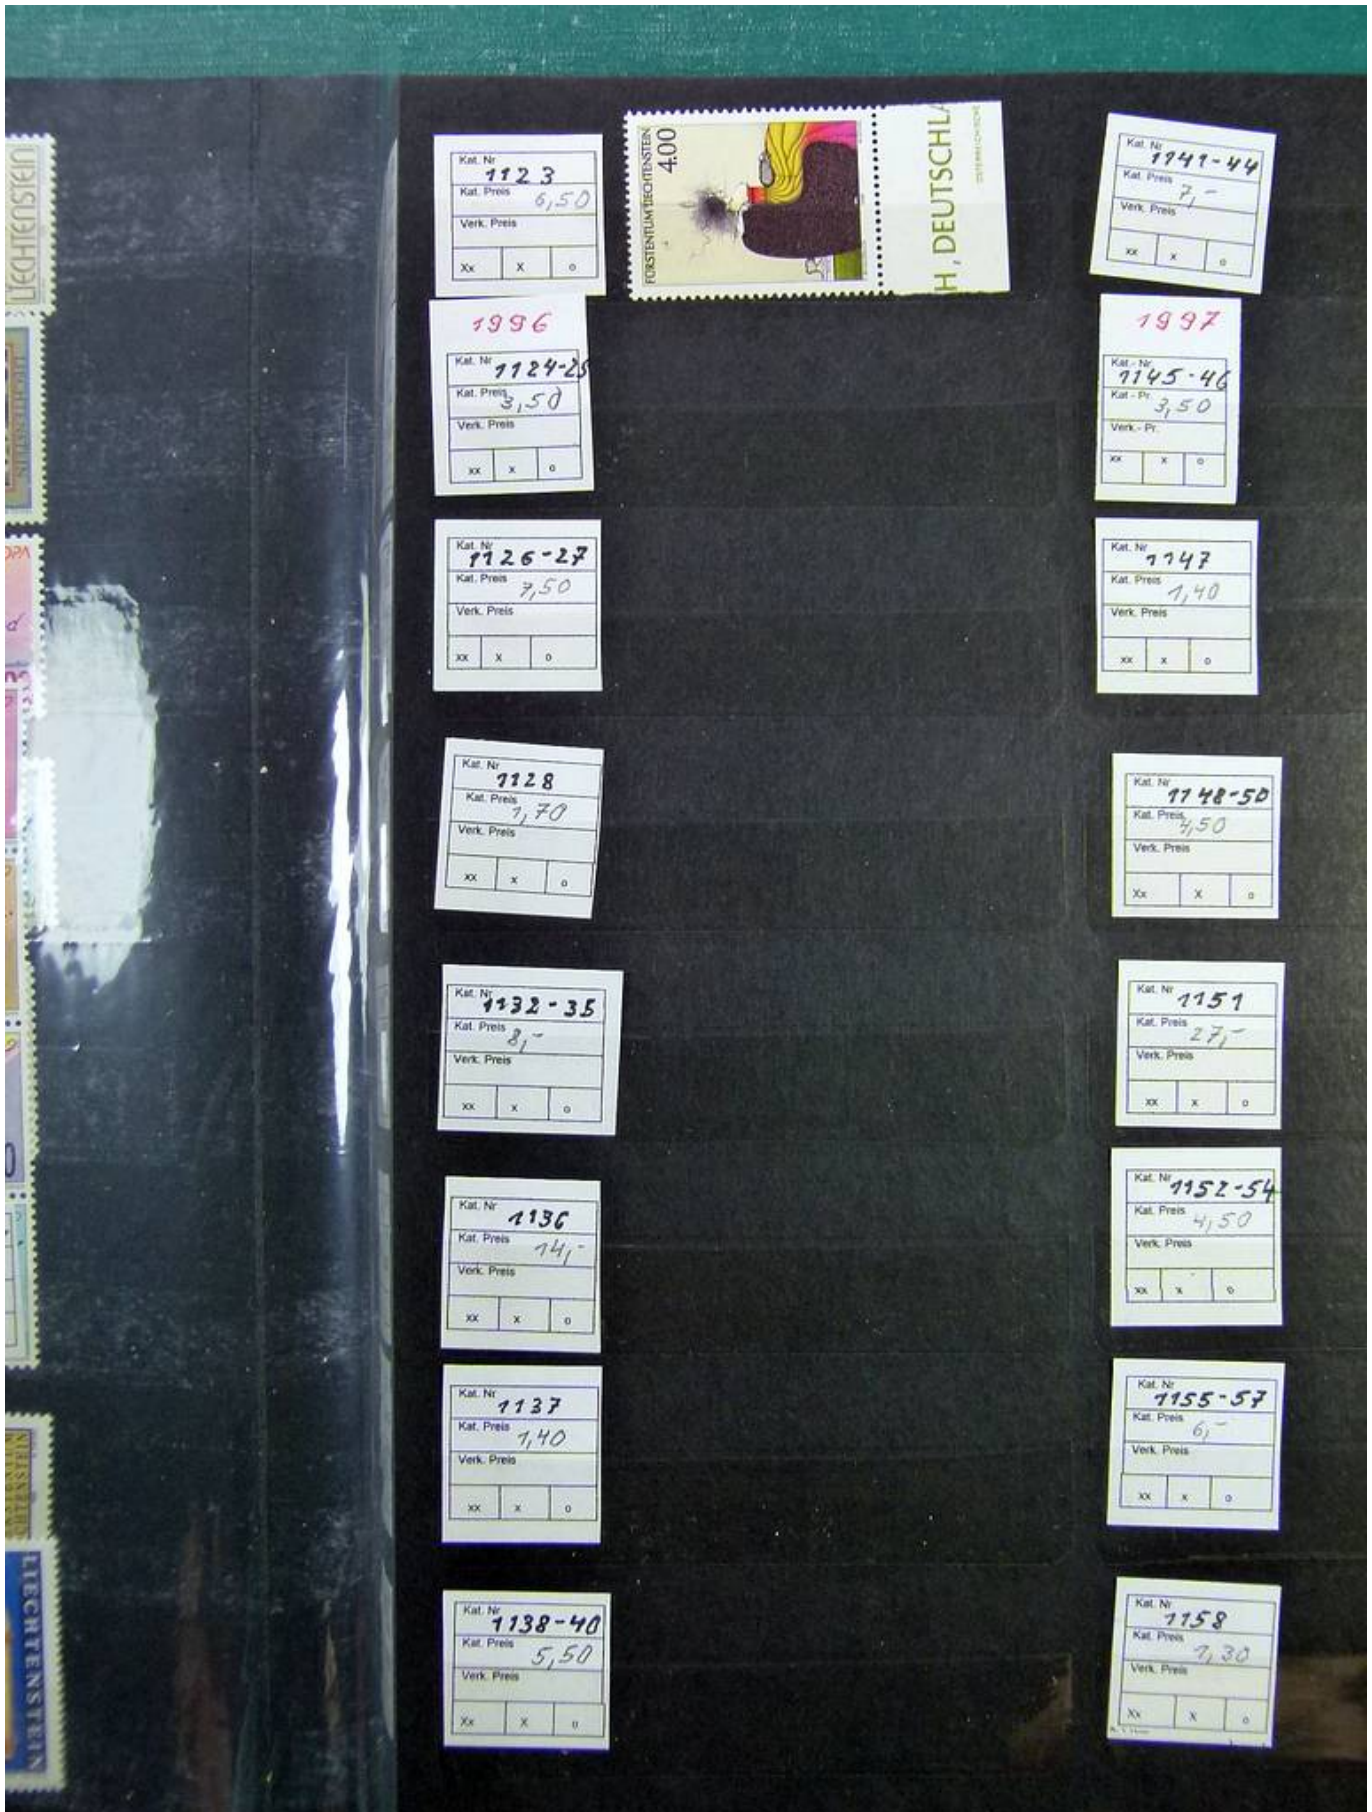 LIECHTENSTEIN
LIECHTENSTEIN
Kat. Nr
1123
Kat. Preis
6,50
Verk. Preis
Xx X o
FÜRSTENTUM LIECHTENSTEIN
4.00
H, DEUTSCHLA
ÖSTERREICHISCHE
1996
Kat. Nr
1124-25
Kat. Preis
3,50
Verk. Preis
xx x o
Kat. Nr
1126-27
Kat. Preis
7,50
Verk. Preis
xx x o
Kat. Nr
1128
Kat. Preis
1,70
Verk. Preis
xx x o
Kat. Nr
1132-35
Kat. Preis
8,-
Verk. Preis
xx x o
Kat. Nr
1136
Kat. Preis
14,-
Verk. Preis
xx x o
Kat. Nr
1137
Kat. Preis
1,40
Verk. Preis
xx x o
Kat. Nr
1138-40
Kat. Preis
5,50
Verk. Preis
Xx X o
Kat. Nr
1141-44
Kat. Preis
7,-
Verk. Preis
xx x o
1997
Kat.- Nr.
1145-46
Kat - Pr.
3,50
Verk.- Pr.
xx x o
Kat. Nr
1147
Kat. Preis
1,40
Verk. Preis
xx x o
Kat. Nr
1148-50
Kat. Preis
4,50
Verk. Preis
Xx X o
Kat. Nr
1151
Kat. Preis
27,-
Verk. Preis
xx x o
Kat. Nr
1152-54
Kat. Preis
4,50
Verk. Preis
xx x o
Kat. Nr
1155-57
Kat. Preis
6,-
Verk. Preis
xx x o
Kat. Nr
1158
Kat. Preis
1,30
Verk. Preis
Xx X o